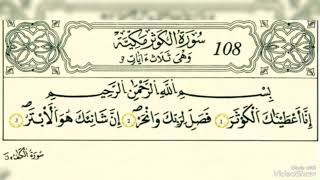 سُورَةُ الْكَوْثَرِ مَكِّيَّةٌ
108
وَهِيَ ثَلَاثُ آيَاتٍ 3
بِسْمِ اللَّهِ الرَّحْمَٰنِ الرَّحِيمِ
إِنَّا أَعْطَيْنَاكَ الْكَوْثَرَ 1 فَصَلِّ لِرَبِّكَ وَانْحَرْ 2 إِنَّ شَانِئَكَ هُوَ الْأَبْتَرُ 3
Made with
VideoShow